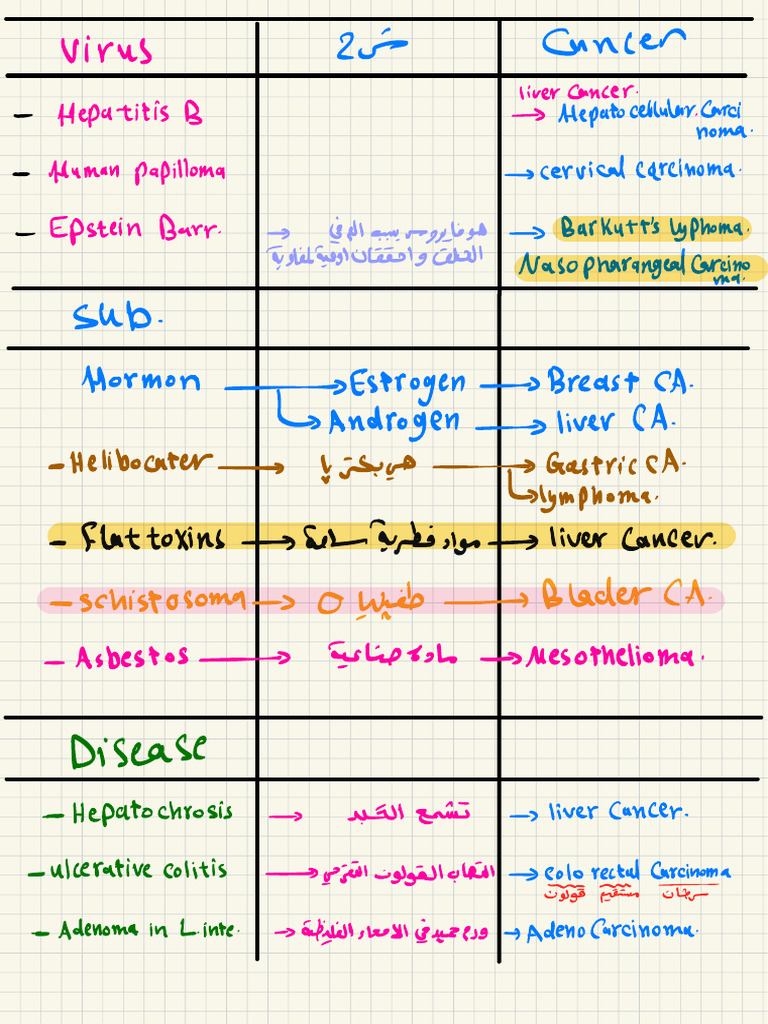 Virus شرح Cancer
liver Cancer.
- Hepatitis B → Hepatocellular. Carci
noma.
- Human Papilloma → cervical carcinoma.
- Epstein Barr. → هو فايروس يسبب → Barkutt's lyphoma.
الحلق و Nasopharangeal Carcino
ma.
Sub.
Hormon → Estrogen → Breast CA.
Androgen → liver CA.
- Helibocater → هي بكتريا → Gastric CA.
lymphoma.
- Flattoxins → مواد فطرية سامة → liver Cancer.
- schistosoma → طفيليات → Blader CA.
- Asbestos → مادة صناعية → Mesothelioma.
Disease
- Hepatochrosis → تشمع الكبد → liver Cancer.
- ulcerative colitis → التهاب القولون التقرحي → colo rectul Carcinoma
قولون مستقيم سرطان
- Adenoma in L.inte. → ورم حميد في الامعاء الغليظة → Adeno Carcinoma.